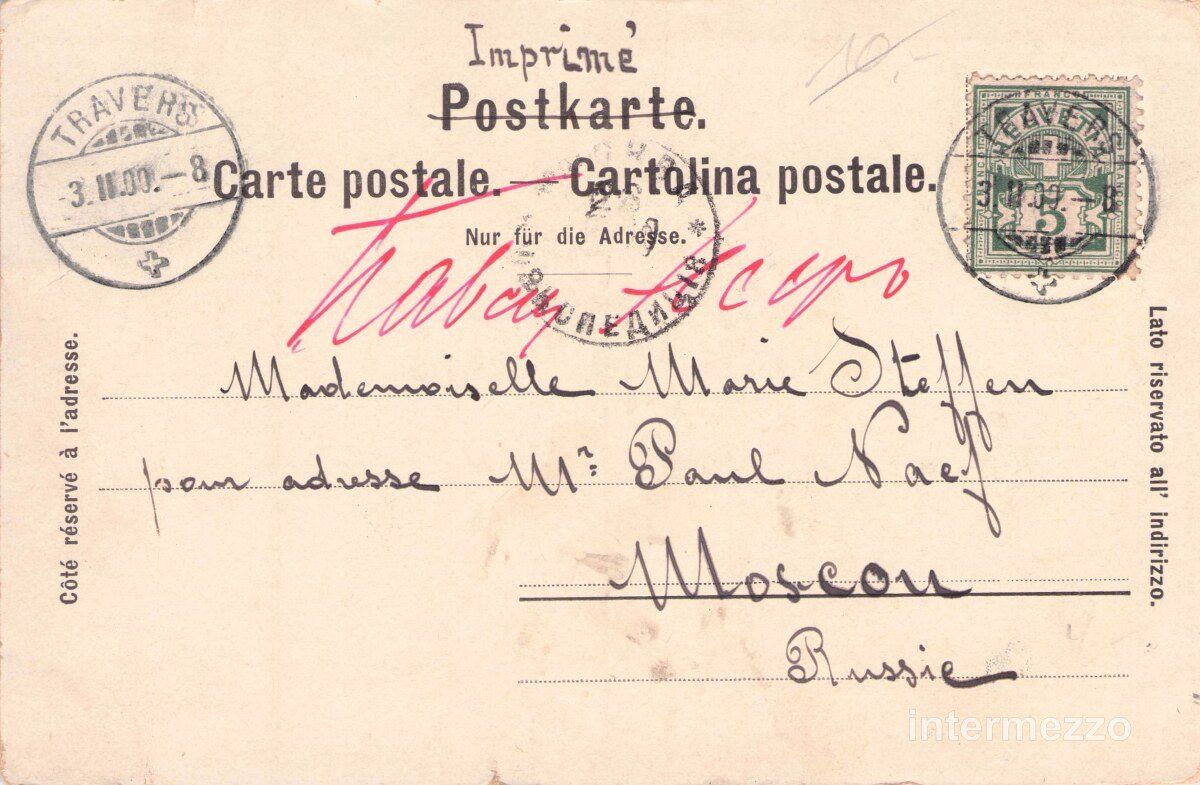 Imprimé
10.-
Postkarte.
Carte postale. — Cartolina postale.
Nur für die Adresse.
TRAVERS
3.II.00.-8
TRAVERS
3.II.00.-8
FRANCO
5
ЭКСПЕДИЦІЯ
Mademoiselle Marie Steffen
pour adresse Mr. Paul Naef
Moscou
Russie
Côté réservé à l'adresse.
Lato riservato all' indirizzo.
intermezzo